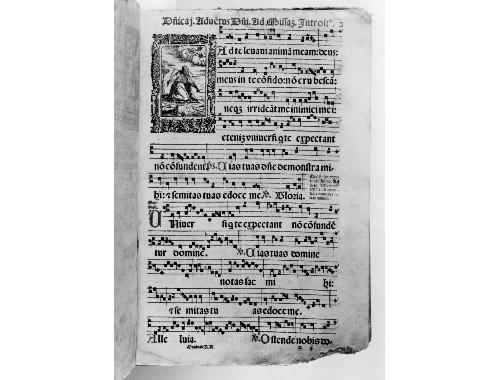 Dñicaj. Aduẽtus Dñi. Ad Missaz. Introit⁹. 2
Ad te leuaui animã meam: deus:
meus in te cõfido: nõ erubescã:
neqz irrideãt me inimici mei:
etenim vniuersi q te expectant
nõ cõfundent ps. Uias tuas dñe demonstra mi-
hi: et semitas tuas edoce me. Gloria.
Uniuer si q te expectant nõ cõfundẽ
tur domine. v. Uias tuas domine
notas fac mi hi:
et se mitas tu as edoce me.
Alle luia. v. Ostende nobis do-